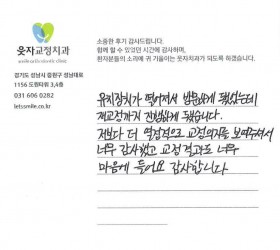 웃자교정치과
경기도 성남시 중원구 성남대로
1156 도원타워 3,4층
031 606 0282
letssmile.co.kr
소중한 후기 감사드립니다.
함께 할 수 있었던 시간에 감사하며,
환자분들의 소리에 귀 기울이는 웃자치과가 되도록 하겠습니다.
유지장치가 떨어져서 방문하게 됐었는데
재교정까지 진행하게 됐습니다.
저보다 더 열정적으로 교정의지를 보여주셔서
너무 감사했고 교정 결과도 너무
마음에 들어요 감사합니다